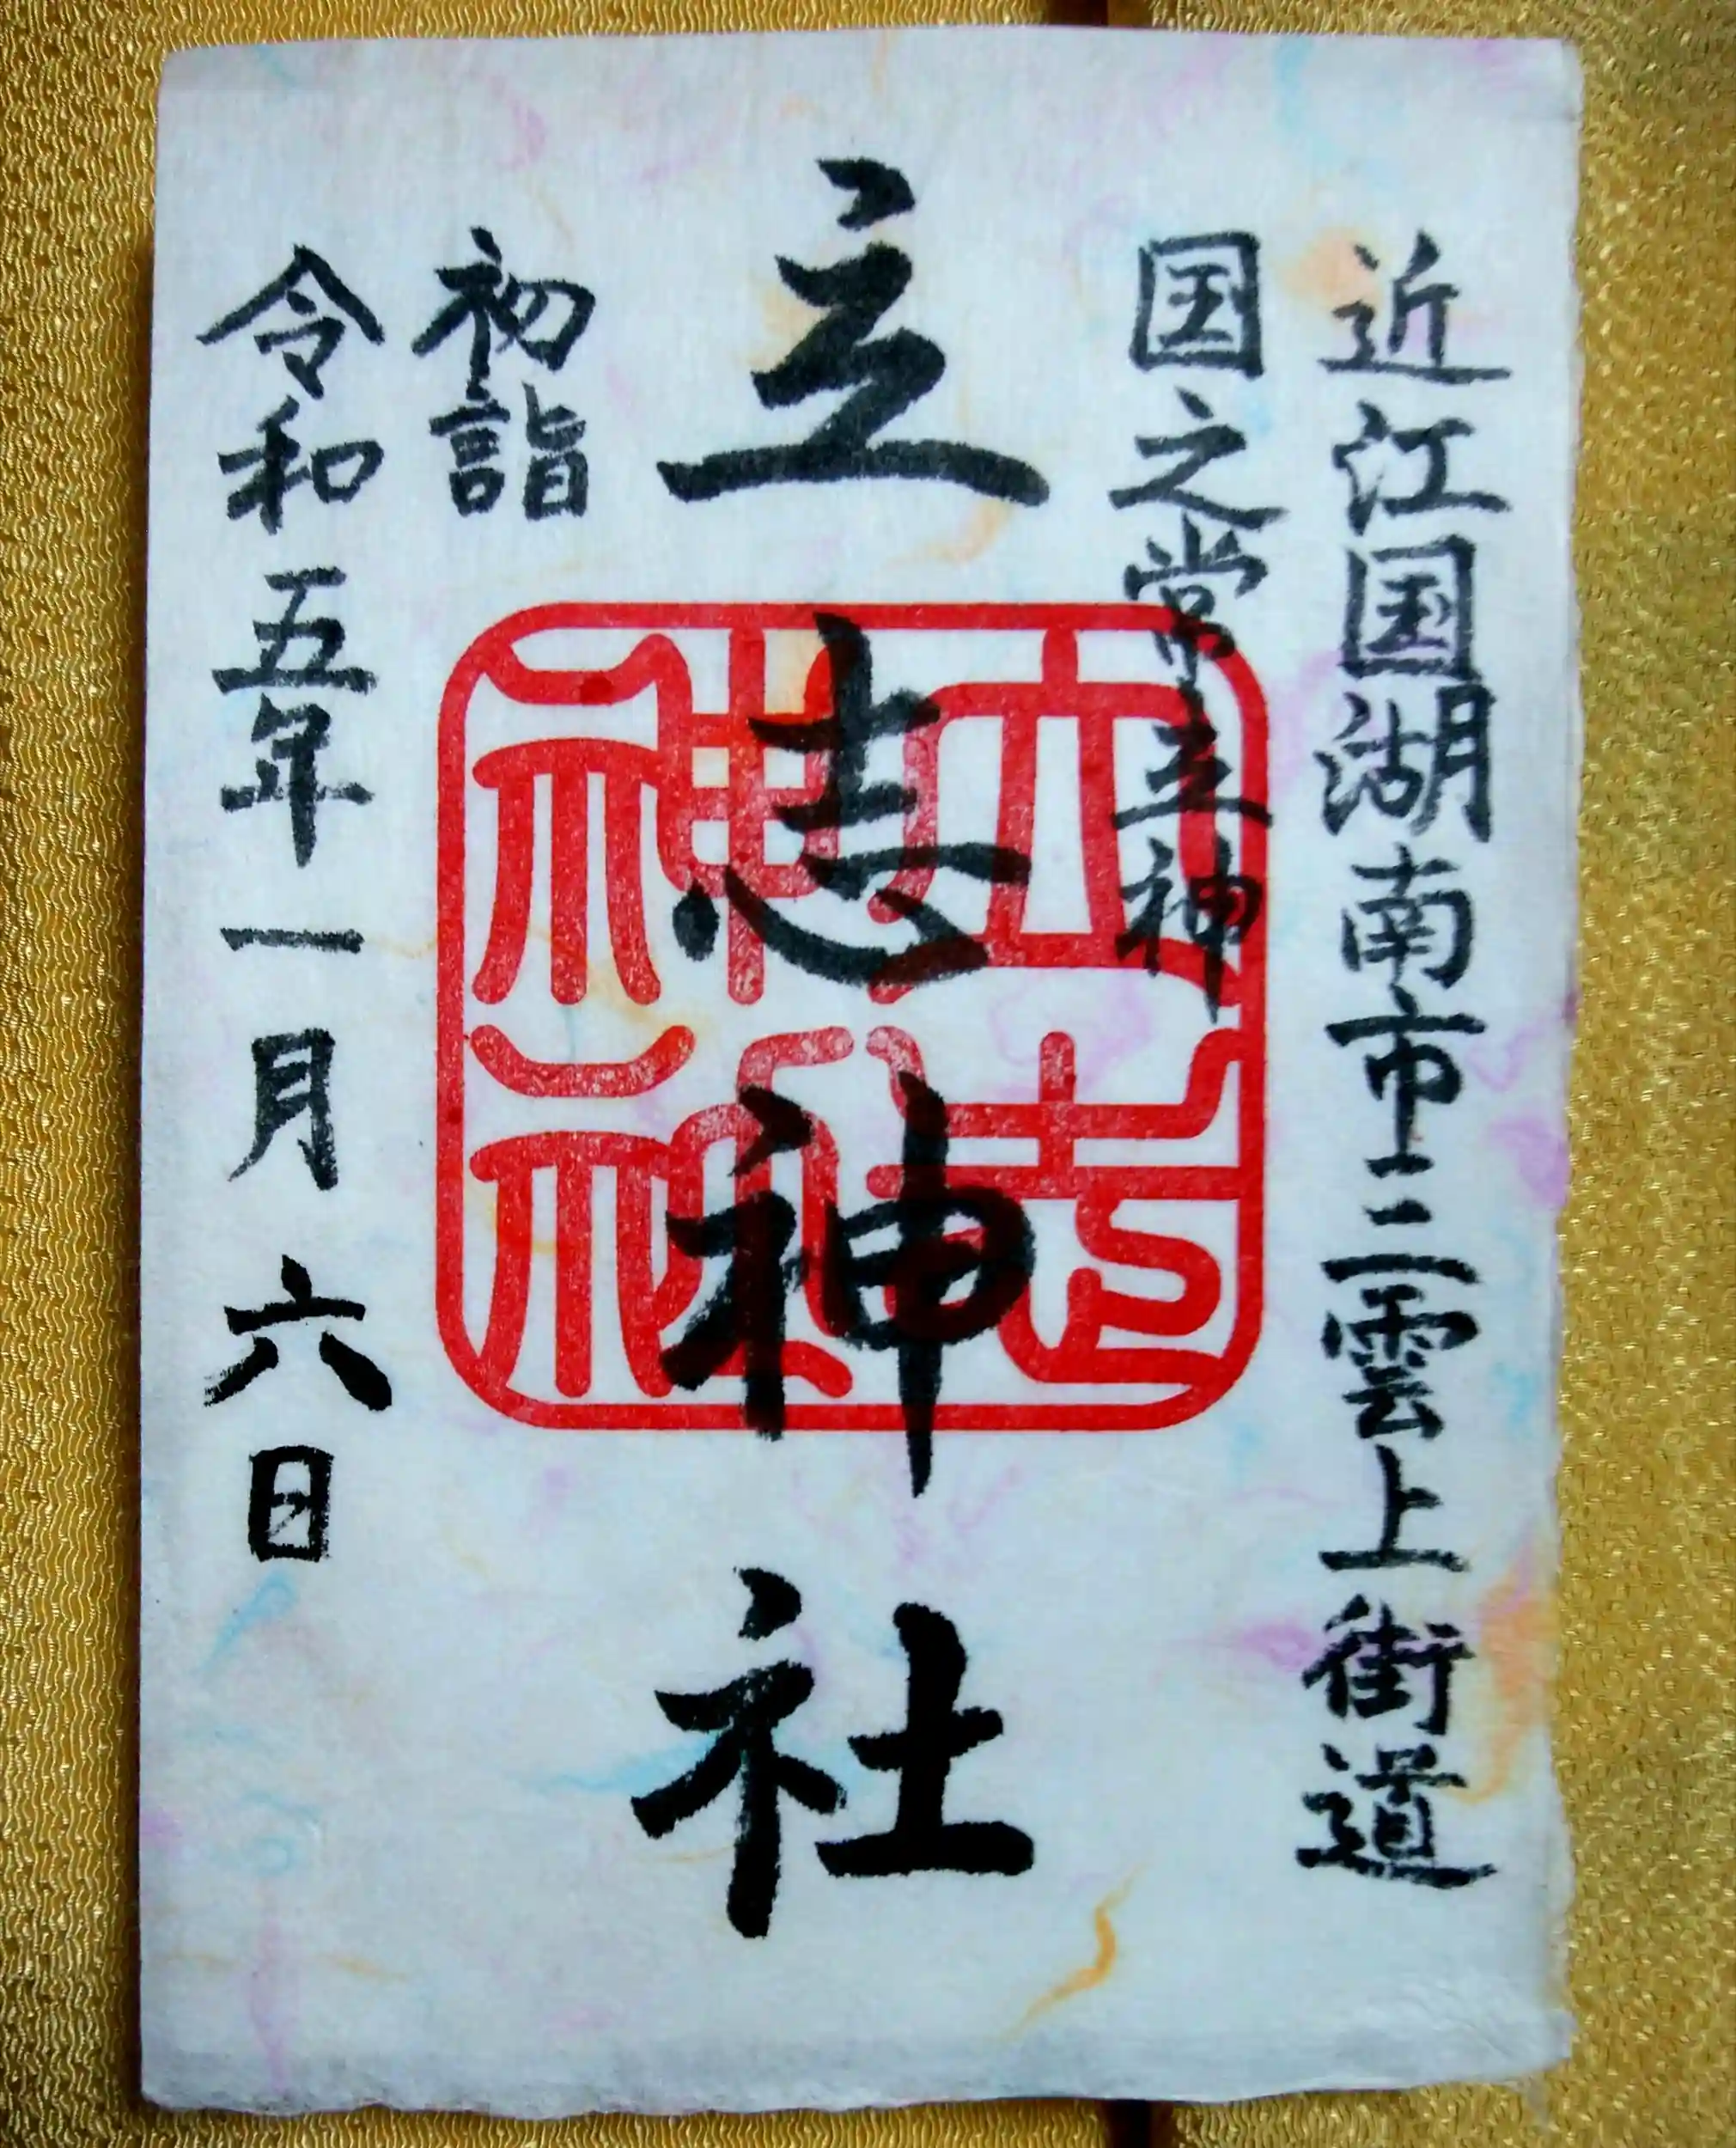 近江国湖南市三雲上街道
国之常立神
立志神社
初詣
令和五年一月六日